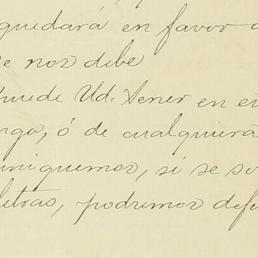 quedará en favor
e nos debe
puede Ud. tener en
rgo, ó de cualquiera
niquemos, si se
letras, podremos